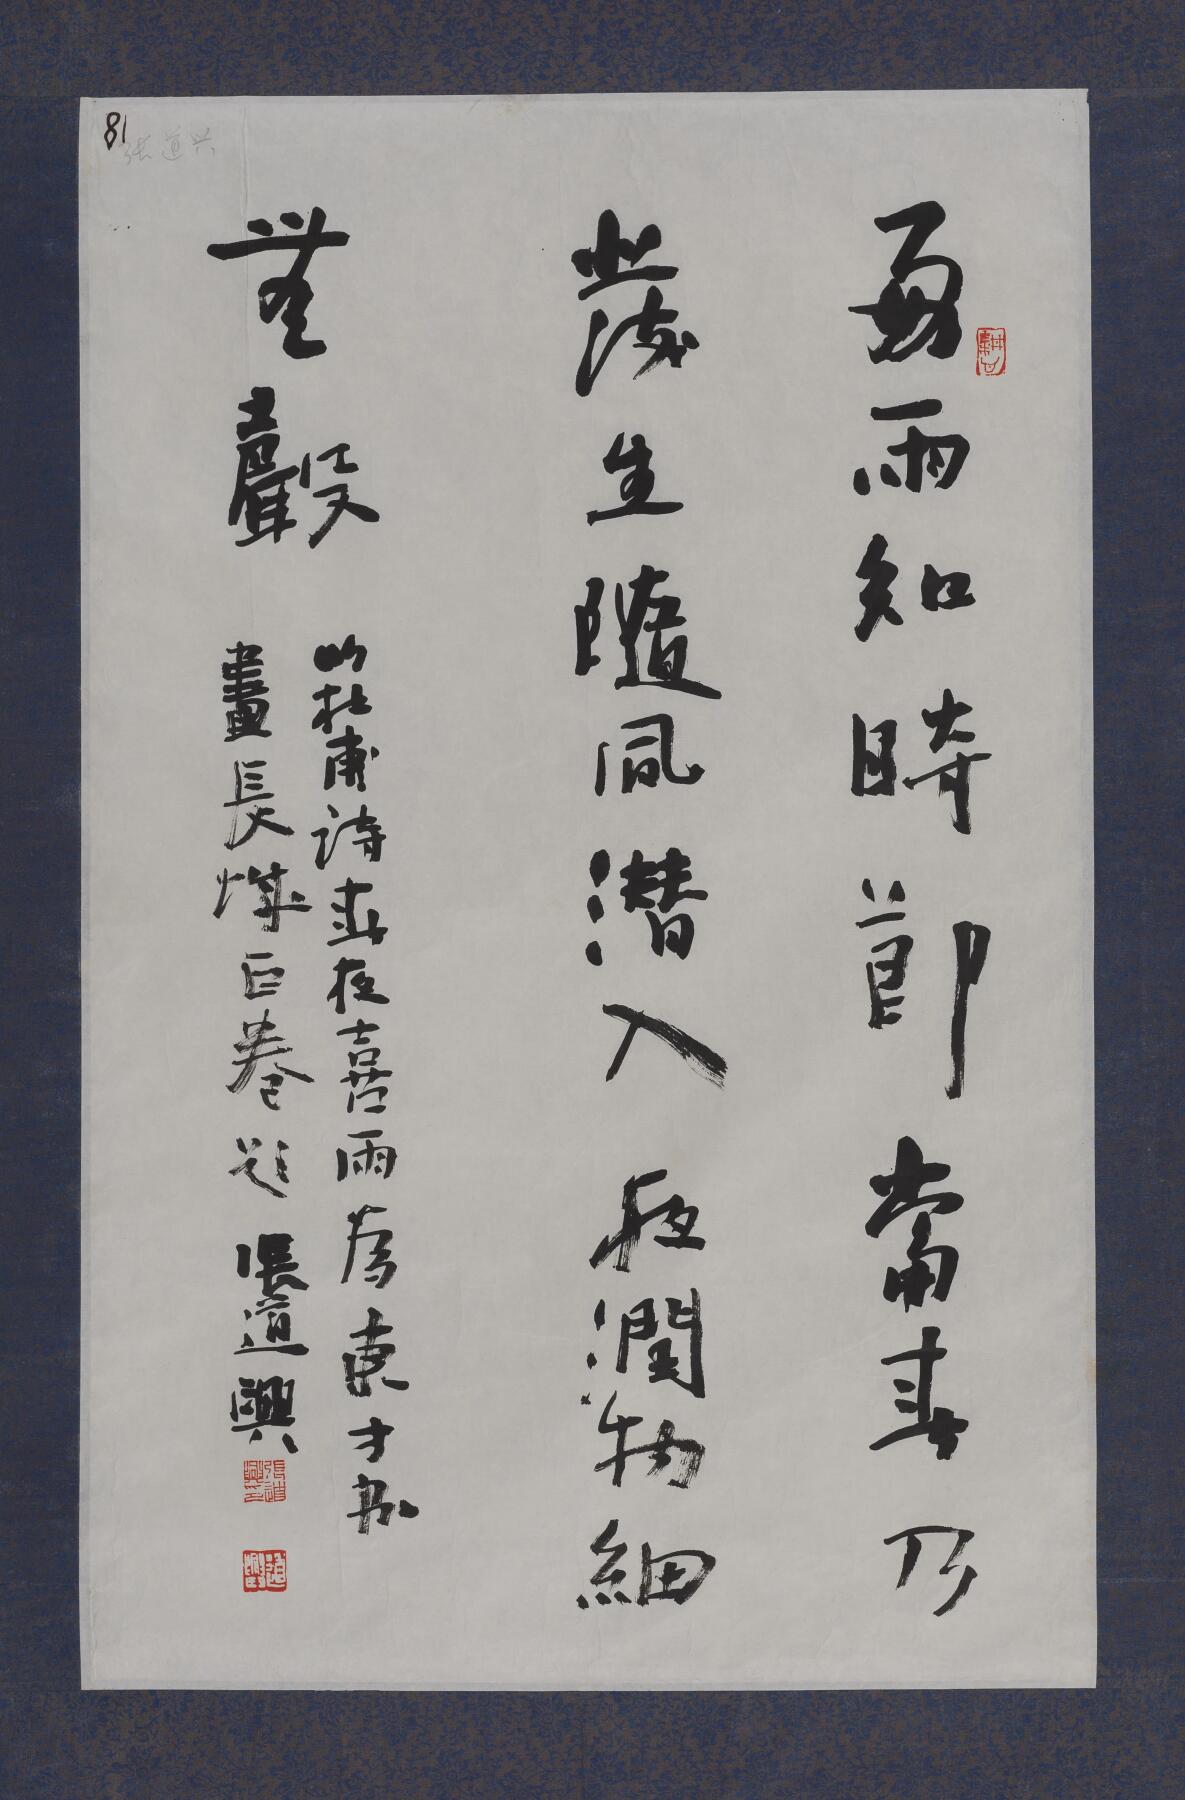 81
张道兴
好雨知時節當春乃
發生隨風潛入夜潤物細
無聲
以杜甫詩春夜喜雨為
畫長 巨卷題 張道興
張道興印
道興